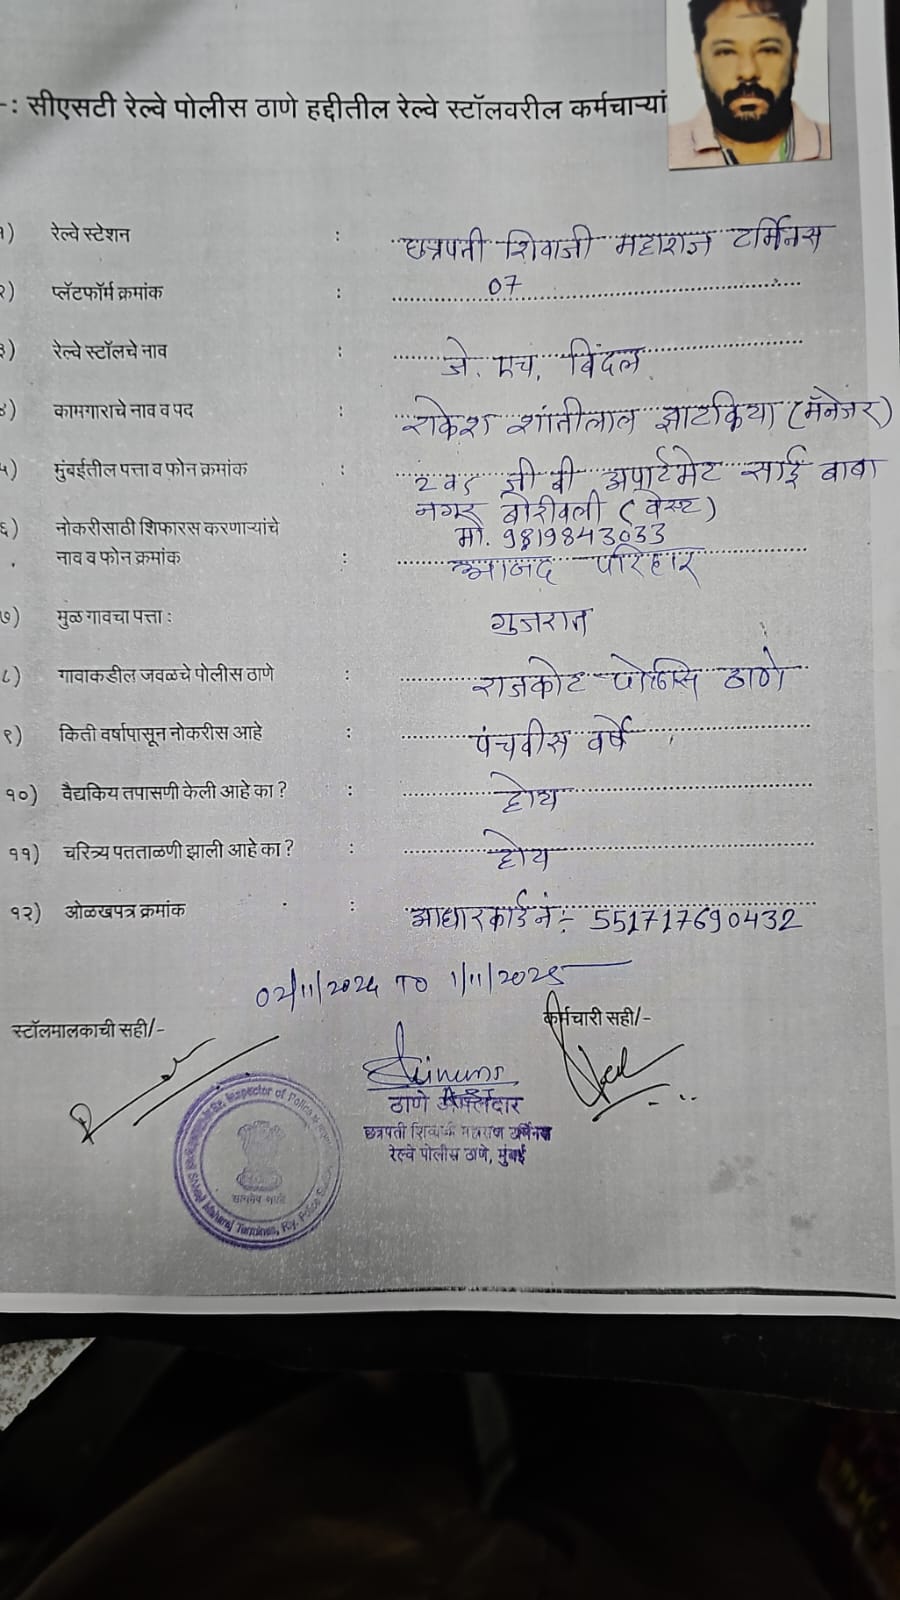 -: सीएसटी रेल्वे पोलीस ठाणे हद्दीतील रेल्वे स्टॉलवरील कर्मचाऱ्यां
१) रेल्वे स्टेशन : छत्रपती शिवाजी महाराज टर्मिनस
२) प्लॅटफॉर्म क्रमांक : 07
३) रेल्वे स्टॉलचे नाव : जे. एच. बिंदल
४) कामगाराचे नाव व पद : राकेश शांतीलाल झाटकिया (मॅनेजर)
५) मुंबईतील पत्ता व फोन क्रमांक : जी बी अपार्टमेट साई बाबा
नगर बोरीवली (वेस्ट)
मो. 9819843033
६) नोकरीसाठी शिफारस करणाऱ्यांचे
नाव व फोन क्रमांक : आनंद परिहार
७) मुळ गावचा पत्ता : गुजरात
८) गावाकडील जवळचे पोलीस ठाणे : राजकोट पोलिस ठाणे
९) किती वर्षापासून नोकरीस आहे : पंचवीस वर्षे
१०) वैद्यकिय तपासणी केली आहे का ? : होय
११) चरित्र्य पतताळणी झाली आहे का ? : होय
१२) ओळखपत्र क्रमांक : आधारकार्ड नं :- 551717690432
02/11/2024 TO 1/11/2025
स्टॉलमालकाची सही/- कर्मचारी सही/-
ठाणे अंमलदार
छत्रपती शिवाजी महाराज टर्मिनस
रेल्वे पोलीस ठाणे, मुंबई
Inspector of Police
Shivaji Maharaj Terminus, Rly. Police
सत्यमेव जयते